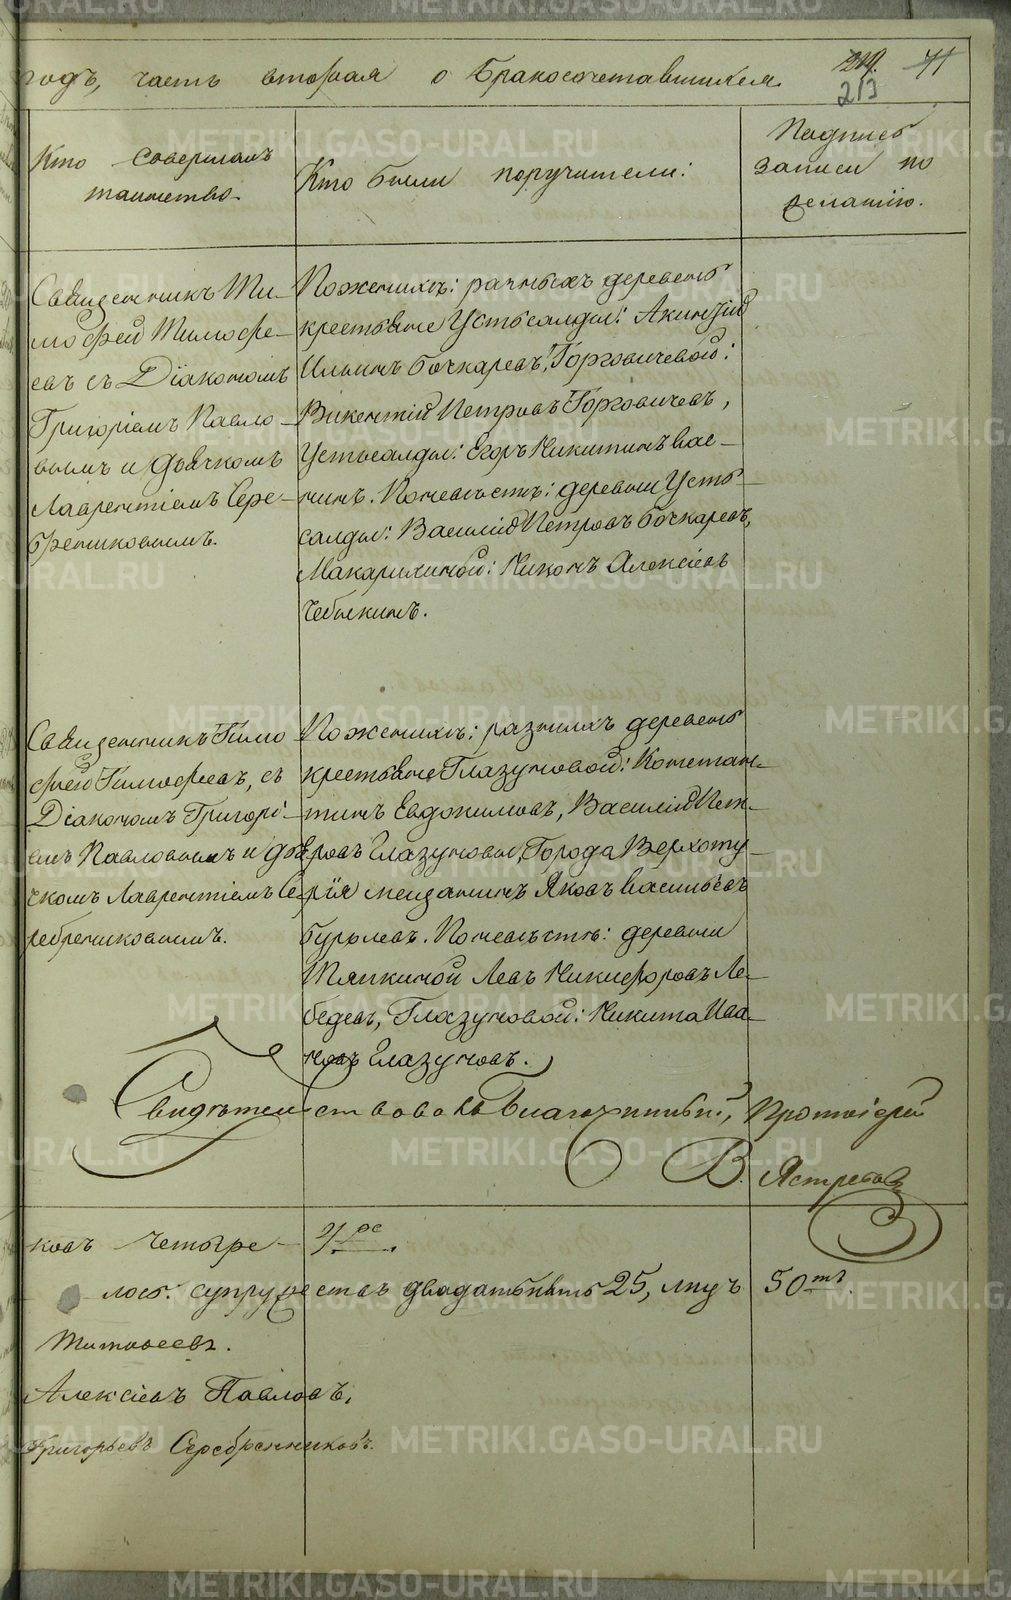 годъ, часть вторая о бракосочетавшихся
213 71
Кто совершалъ
таинство.
Кто были поручители:
Подпись
записи по
желанію.
Священникъ Ти-
мофей Тимофе-
евъ съ Діакономъ
Григоріемъ Павло-
вымъ и дьячкомъ
Лаврентіемъ Сере-
бренниковымъ.
По женихѣ: разныхъ деревень
крестьяне Устьсалды: Акинфій
Ильинъ Бочкаревъ, Горговичевой:
Викентій Петровъ Горговичевъ,
Устьсалды: Егоръ Никитинъ вас-
нинъ. По невѣстѣ: деревни Усть
салды: Василій Петровъ Бочкаревъ,
Макарихиной: Никонъ Алексіевъ
Чебыкинъ.
Священникъ Тимо
фей Тимофеевъ, съ
Діакономъ Григорі-
емъ Павловымъ и дья
чкомъ Лаврентіемъ Се
ребренниковымъ.
По женихѣ: разныхъ деревень
крестьяне Глазуновой: Констан-
тинъ Евдокимовъ, Василій Пет-
ровъ Глазуновы, Города Верхоту-
рія мещанинъ Яковъ васильевъ
бурылевъ. По невѣстѣ: деревни
Тяпкиной Левъ Никифоровъ Ле-
бедевъ, Глазуновой: Никита Ива-
новъ Глазуновъ.
Свидѣтельствовалъ Благочинный, Протоіерей
В. Ястребовъ
ковъ четыре - 4ре.
лось: супружествъ двадать пять 25, лицъ 50тъ.
Тимофеевъ.
Алексіевъ Павловъ,
Григорьевъ Серебренниковъ.
METRIKI.GASO-URAL.RU